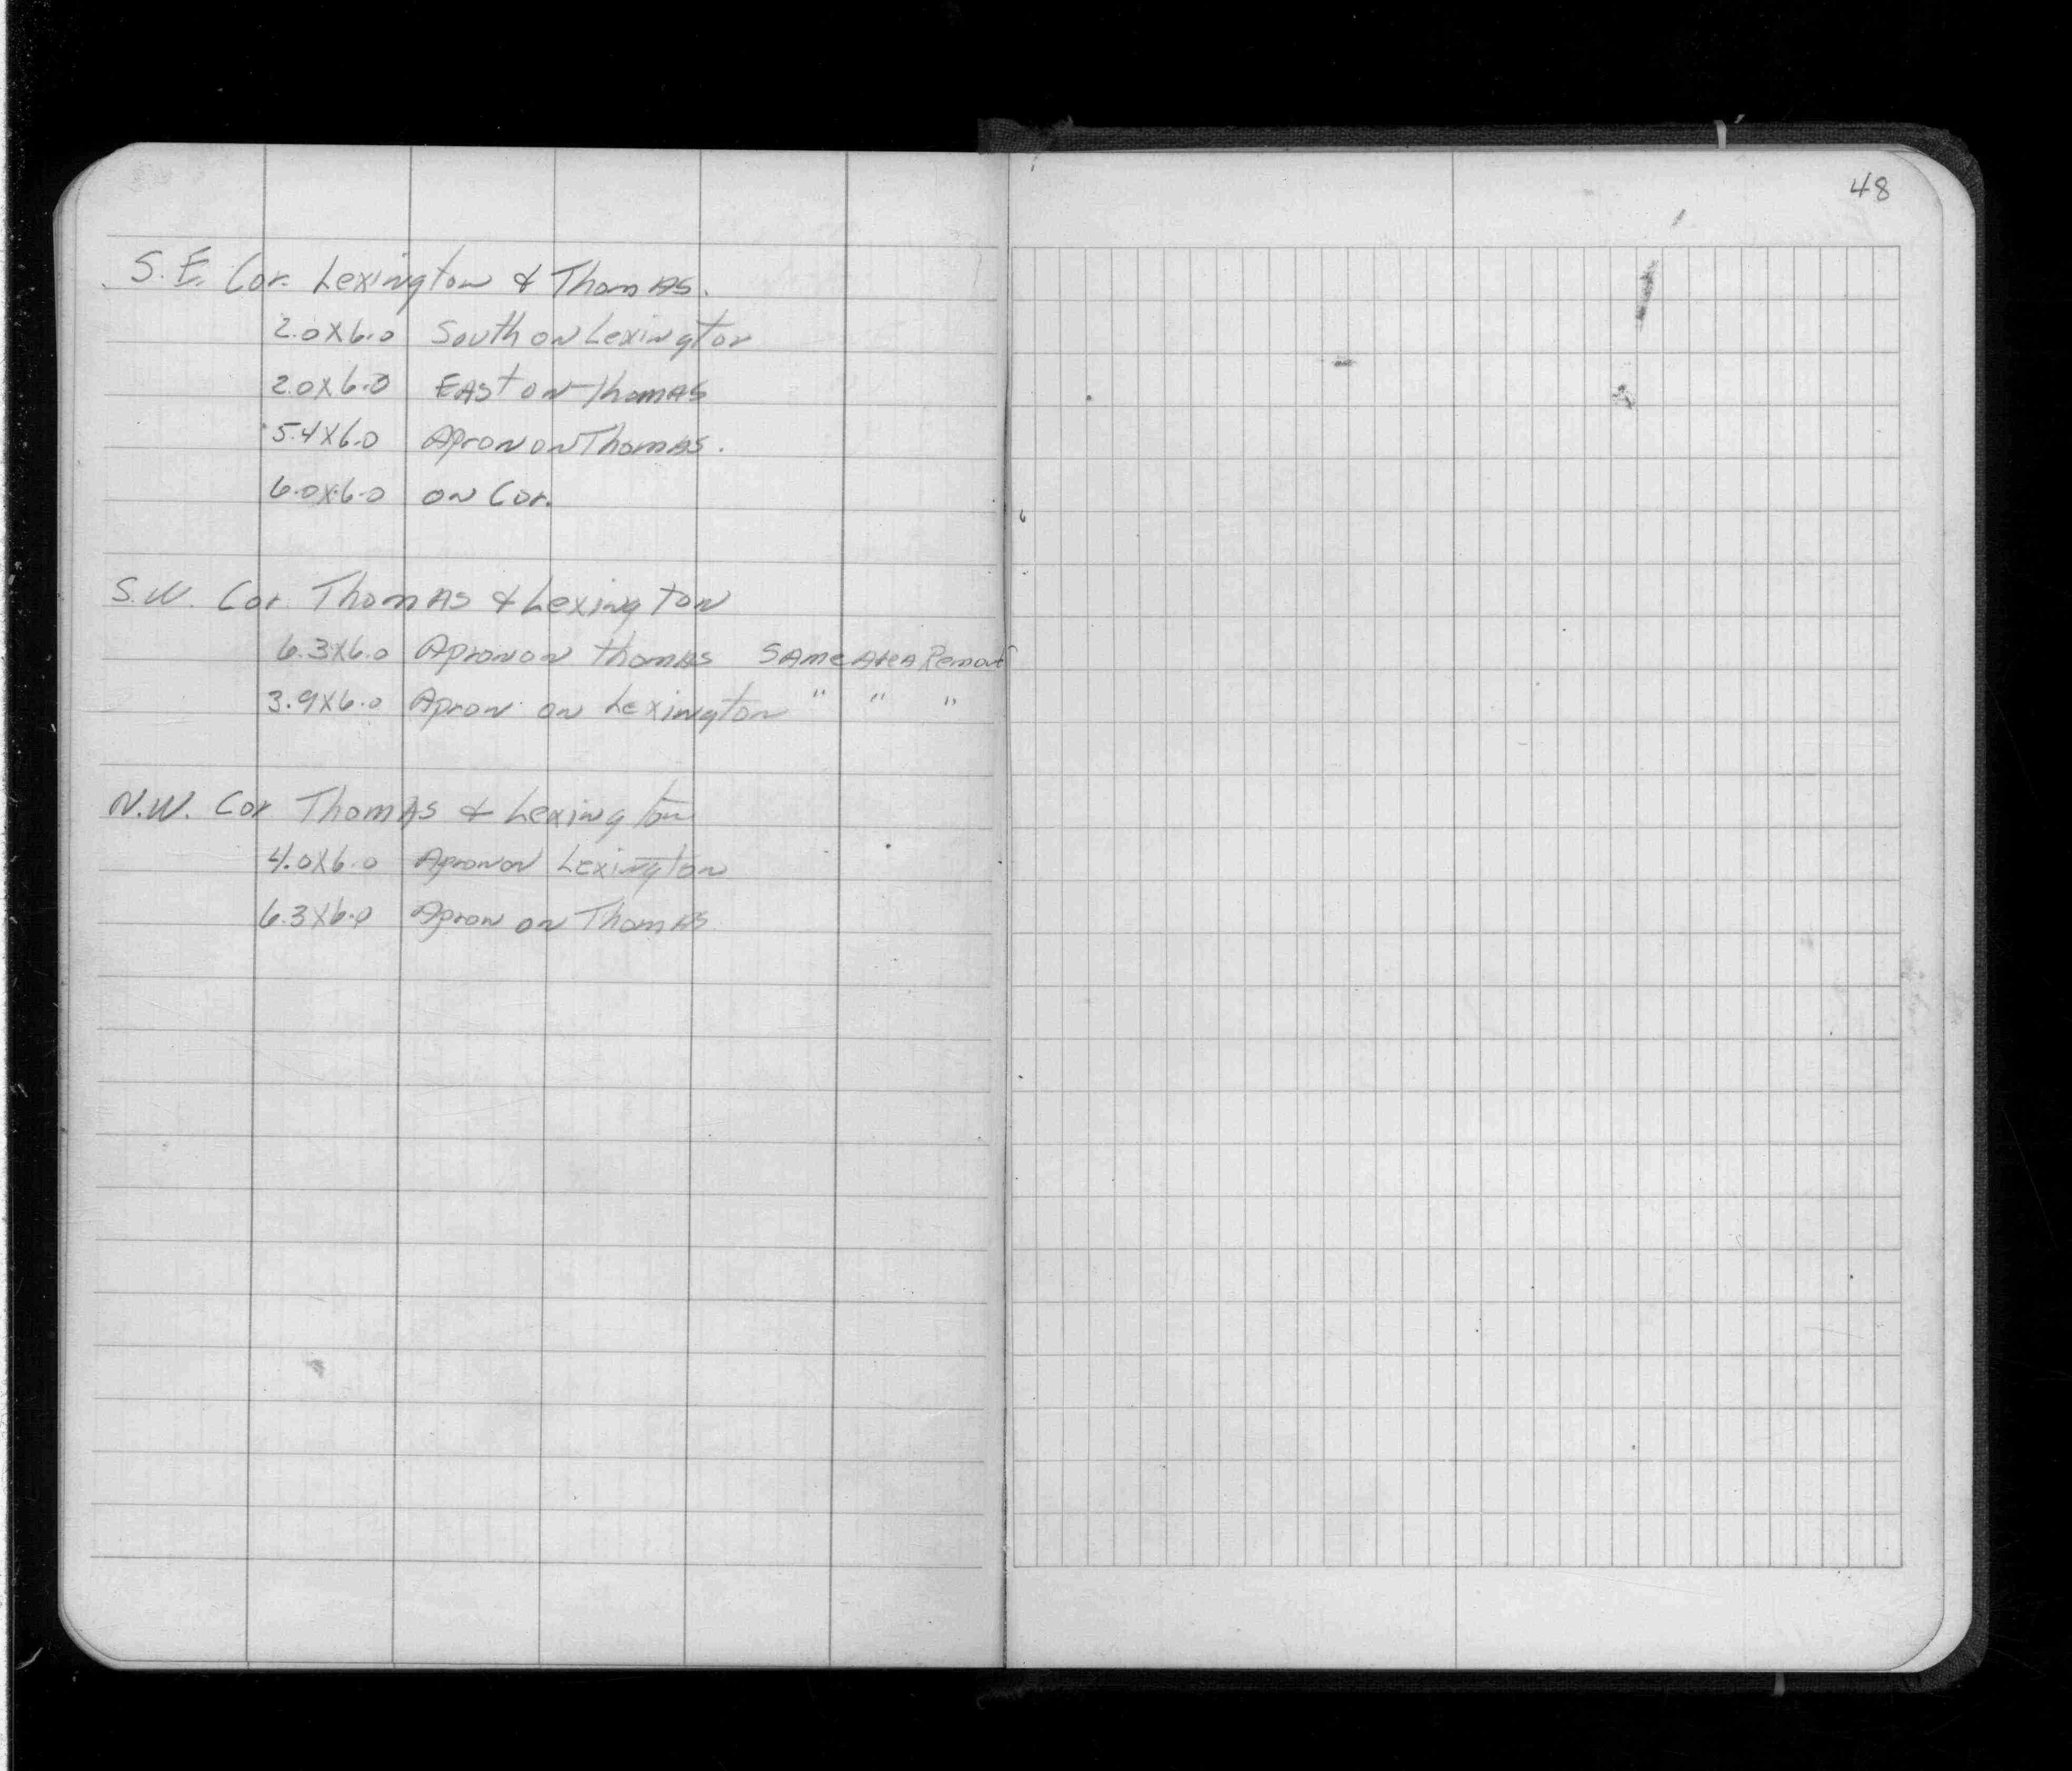 48
S.E. Cor. Lexington & Thomas.
2.0X6.0 South on Lexington
2.0X6.0 East on Thomas
5.4X6.0 Apron on Thomas.
6.0X6.0 on Cor.
S.W. Cor. Thomas & Lexington
6.3X6.0 Apron on Thomas Same Area Remov
3.9X6.0 Apron on Lexington " " "
N.W. Cor. Thomas & Lexington
4.0X6.0 Apron on Lexington
6.3X6.0 Apron on Thomas